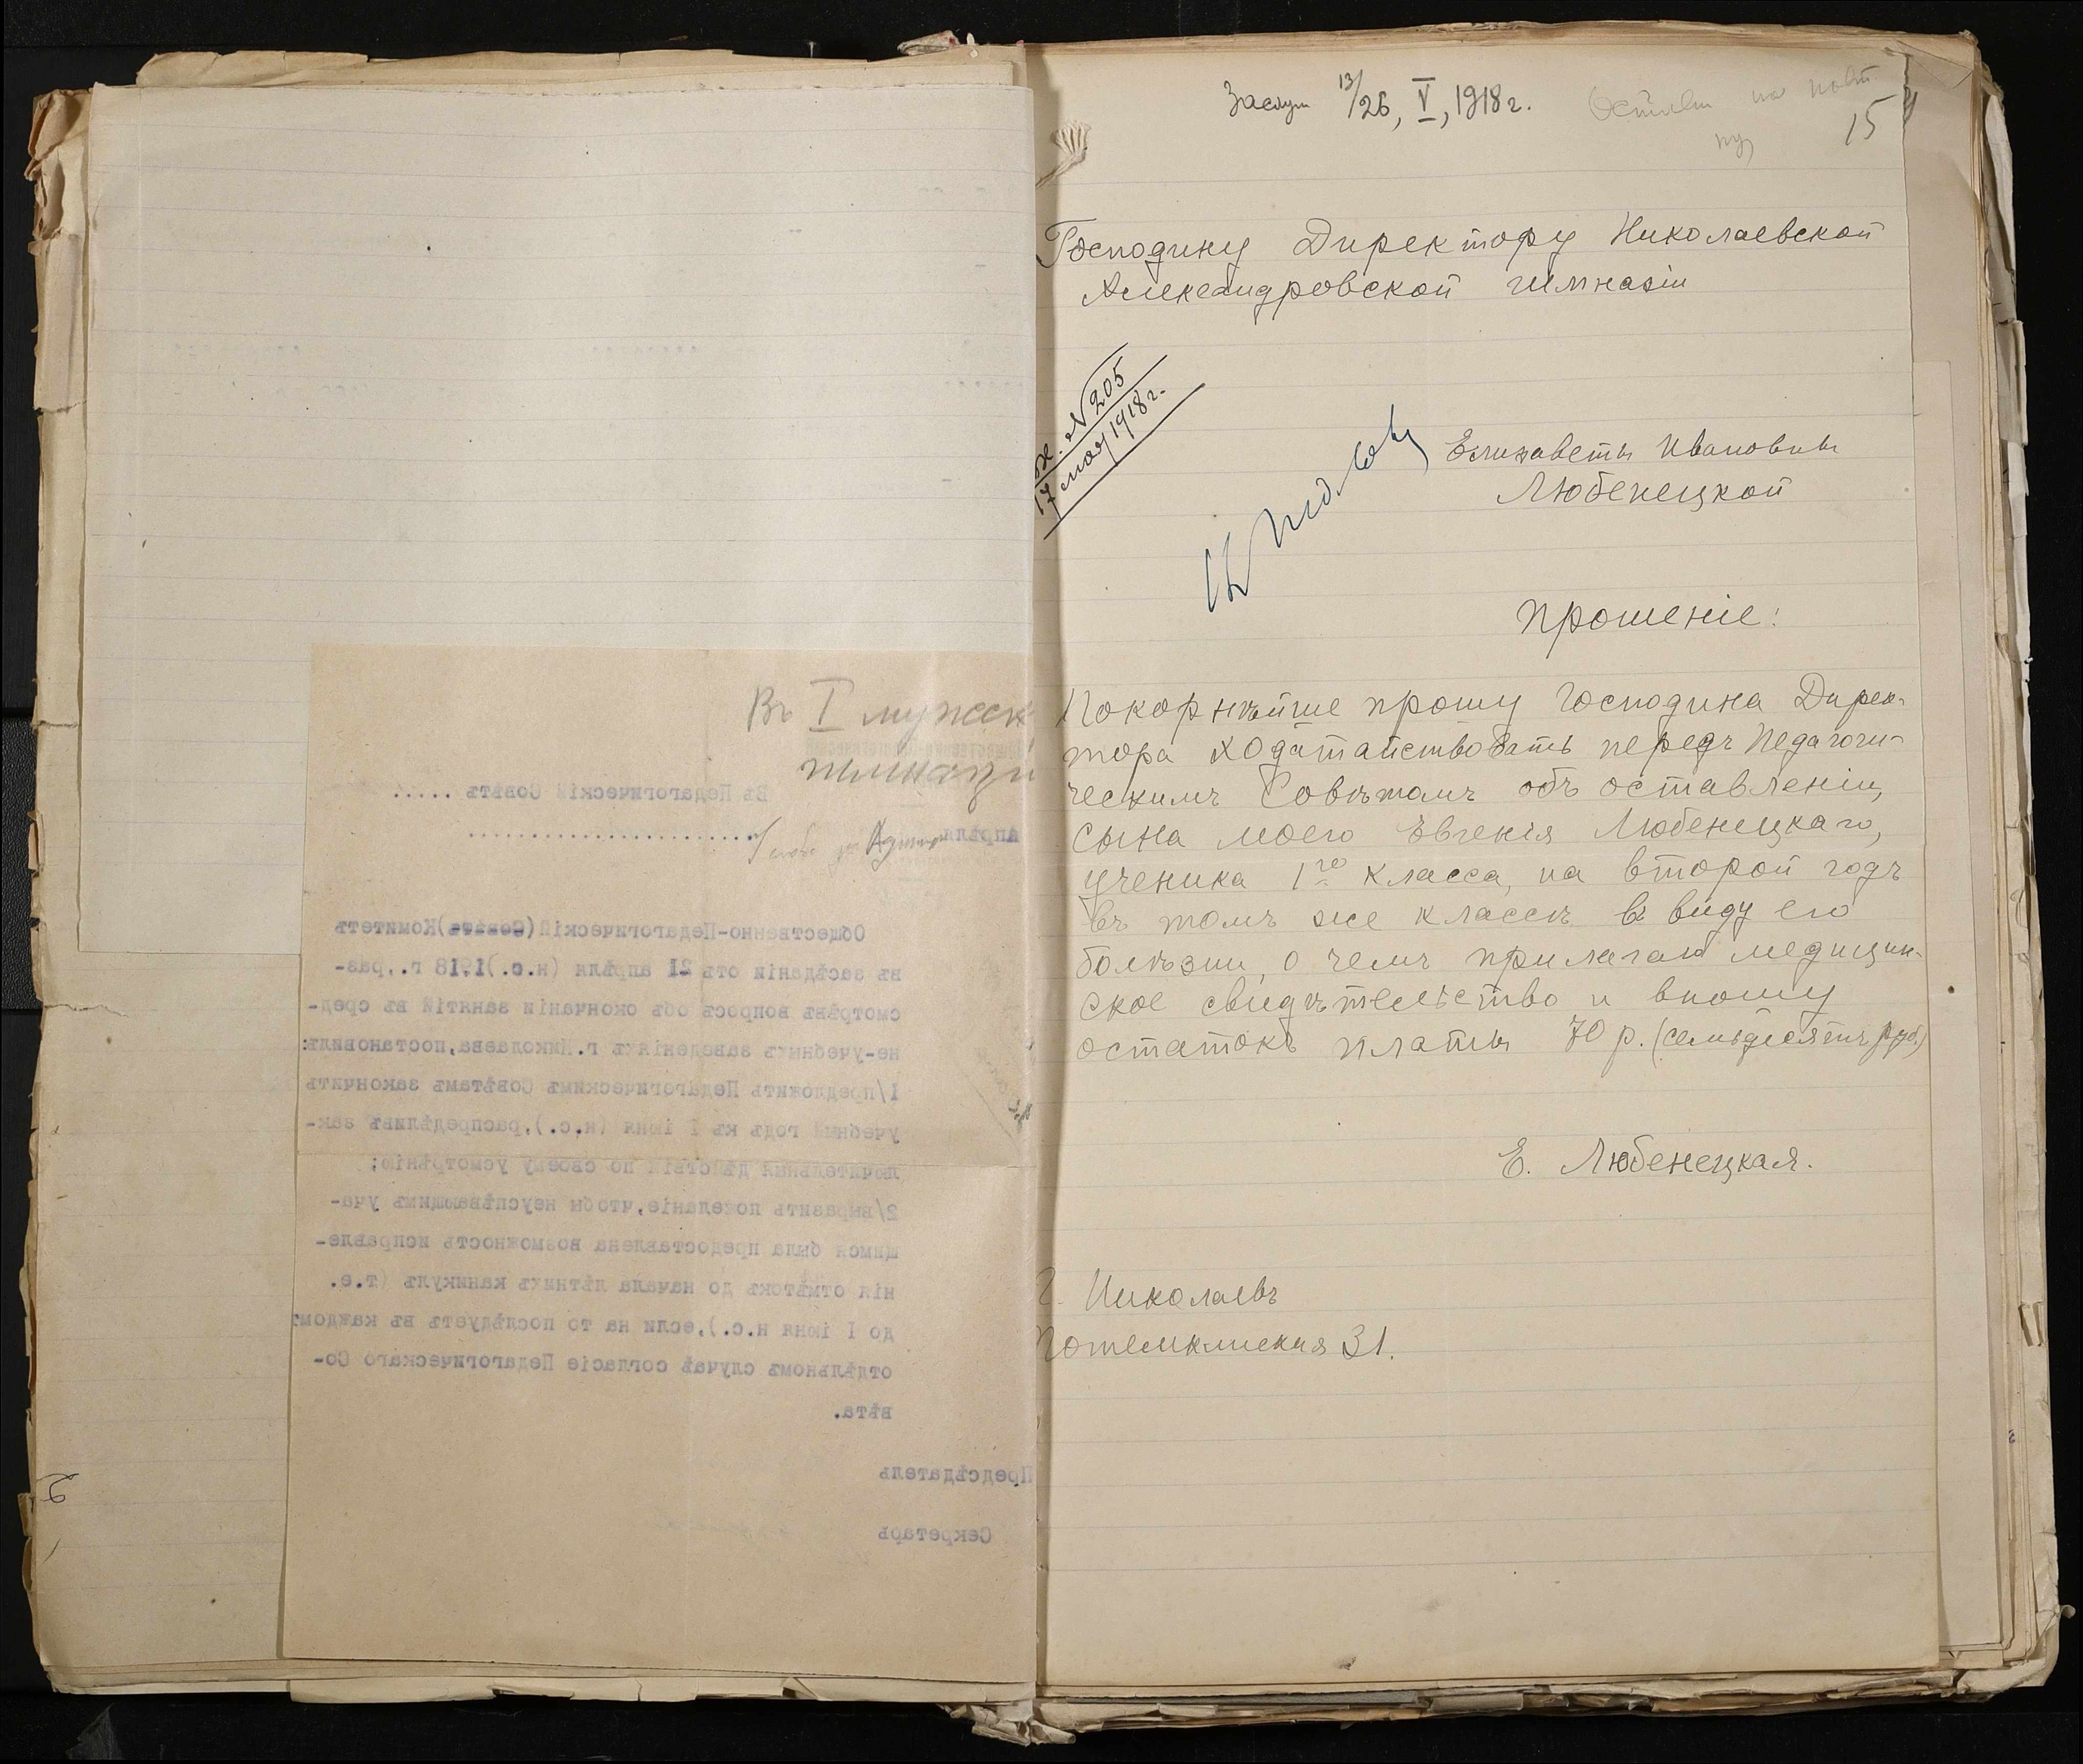 Въ I мужск
гимнази
Въ Педагогическій Совѣтъ .....
апрѣля
Общественно-Педагогическій (Совѣтъ) Комитетъ
въ засѣданіи отъ 21 апрѣля (н.с.) 1918 г., раз-
смотрѣвъ вопросъ объ окончаніи занятій въ сред-
не-учебныхъ заведеніяхъ г. Николаева, постановилъ:
1/предложить Педагогическимъ Совѣтамъ закончить
учебный годъ къ 1 іюня (н.с.), распредѣливъ зак-
лючительныя дѣйствія по своему усмотрѣнію;
2/выразить пожеланіе, чтобы неуспѣвающимъ уча-
щимся была предоставлена возможность исправле-
нія отмѣтокъ до начала лѣтнихъ каникулъ (т.е.
до 1 іюня н.с.), если на то послѣдуетъ въ каждомъ
отдѣльномъ случаѣ согласіе Педагогическаго Со-
вѣта.
Предсѣдатель
Секретарь
Заслуш 13/26, V, 1918 г.
15
Господину Директору Николаевской
Александровской гимназіи
Вх. № 205
17 мая 1918 г.
Елизаветы Ивановны
Любенецкой
Прошеніе:
Покорнѣйше прошу Господина Дирек-
тора ходатайствовать передъ Педагоги-
ческимъ Совѣтомъ объ оставленіи,
сына моего Евгенія Любенецкаго,
ученика 1го класса, на второй годъ
въ томъ же классѣ в виду его
болѣзни, о чемъ прилагаю медицин-
ское свидѣтельство и вношу
остатокъ платы 70 р. (семьдесятъ руб.)
Е. Любенецкая.
г. Николаевъ
Потемкинская 31.